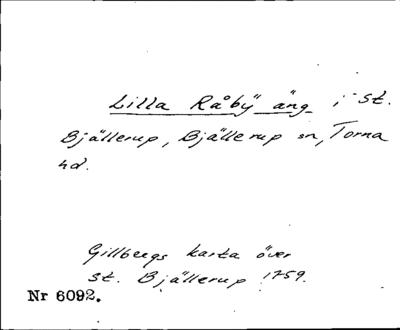 Lilla Råby äng i St.
Bjällerup, Bjällerup sn, Torna
hd.
Gillbergs karta över
St. Bjällerup 1759.
Nr 6092.